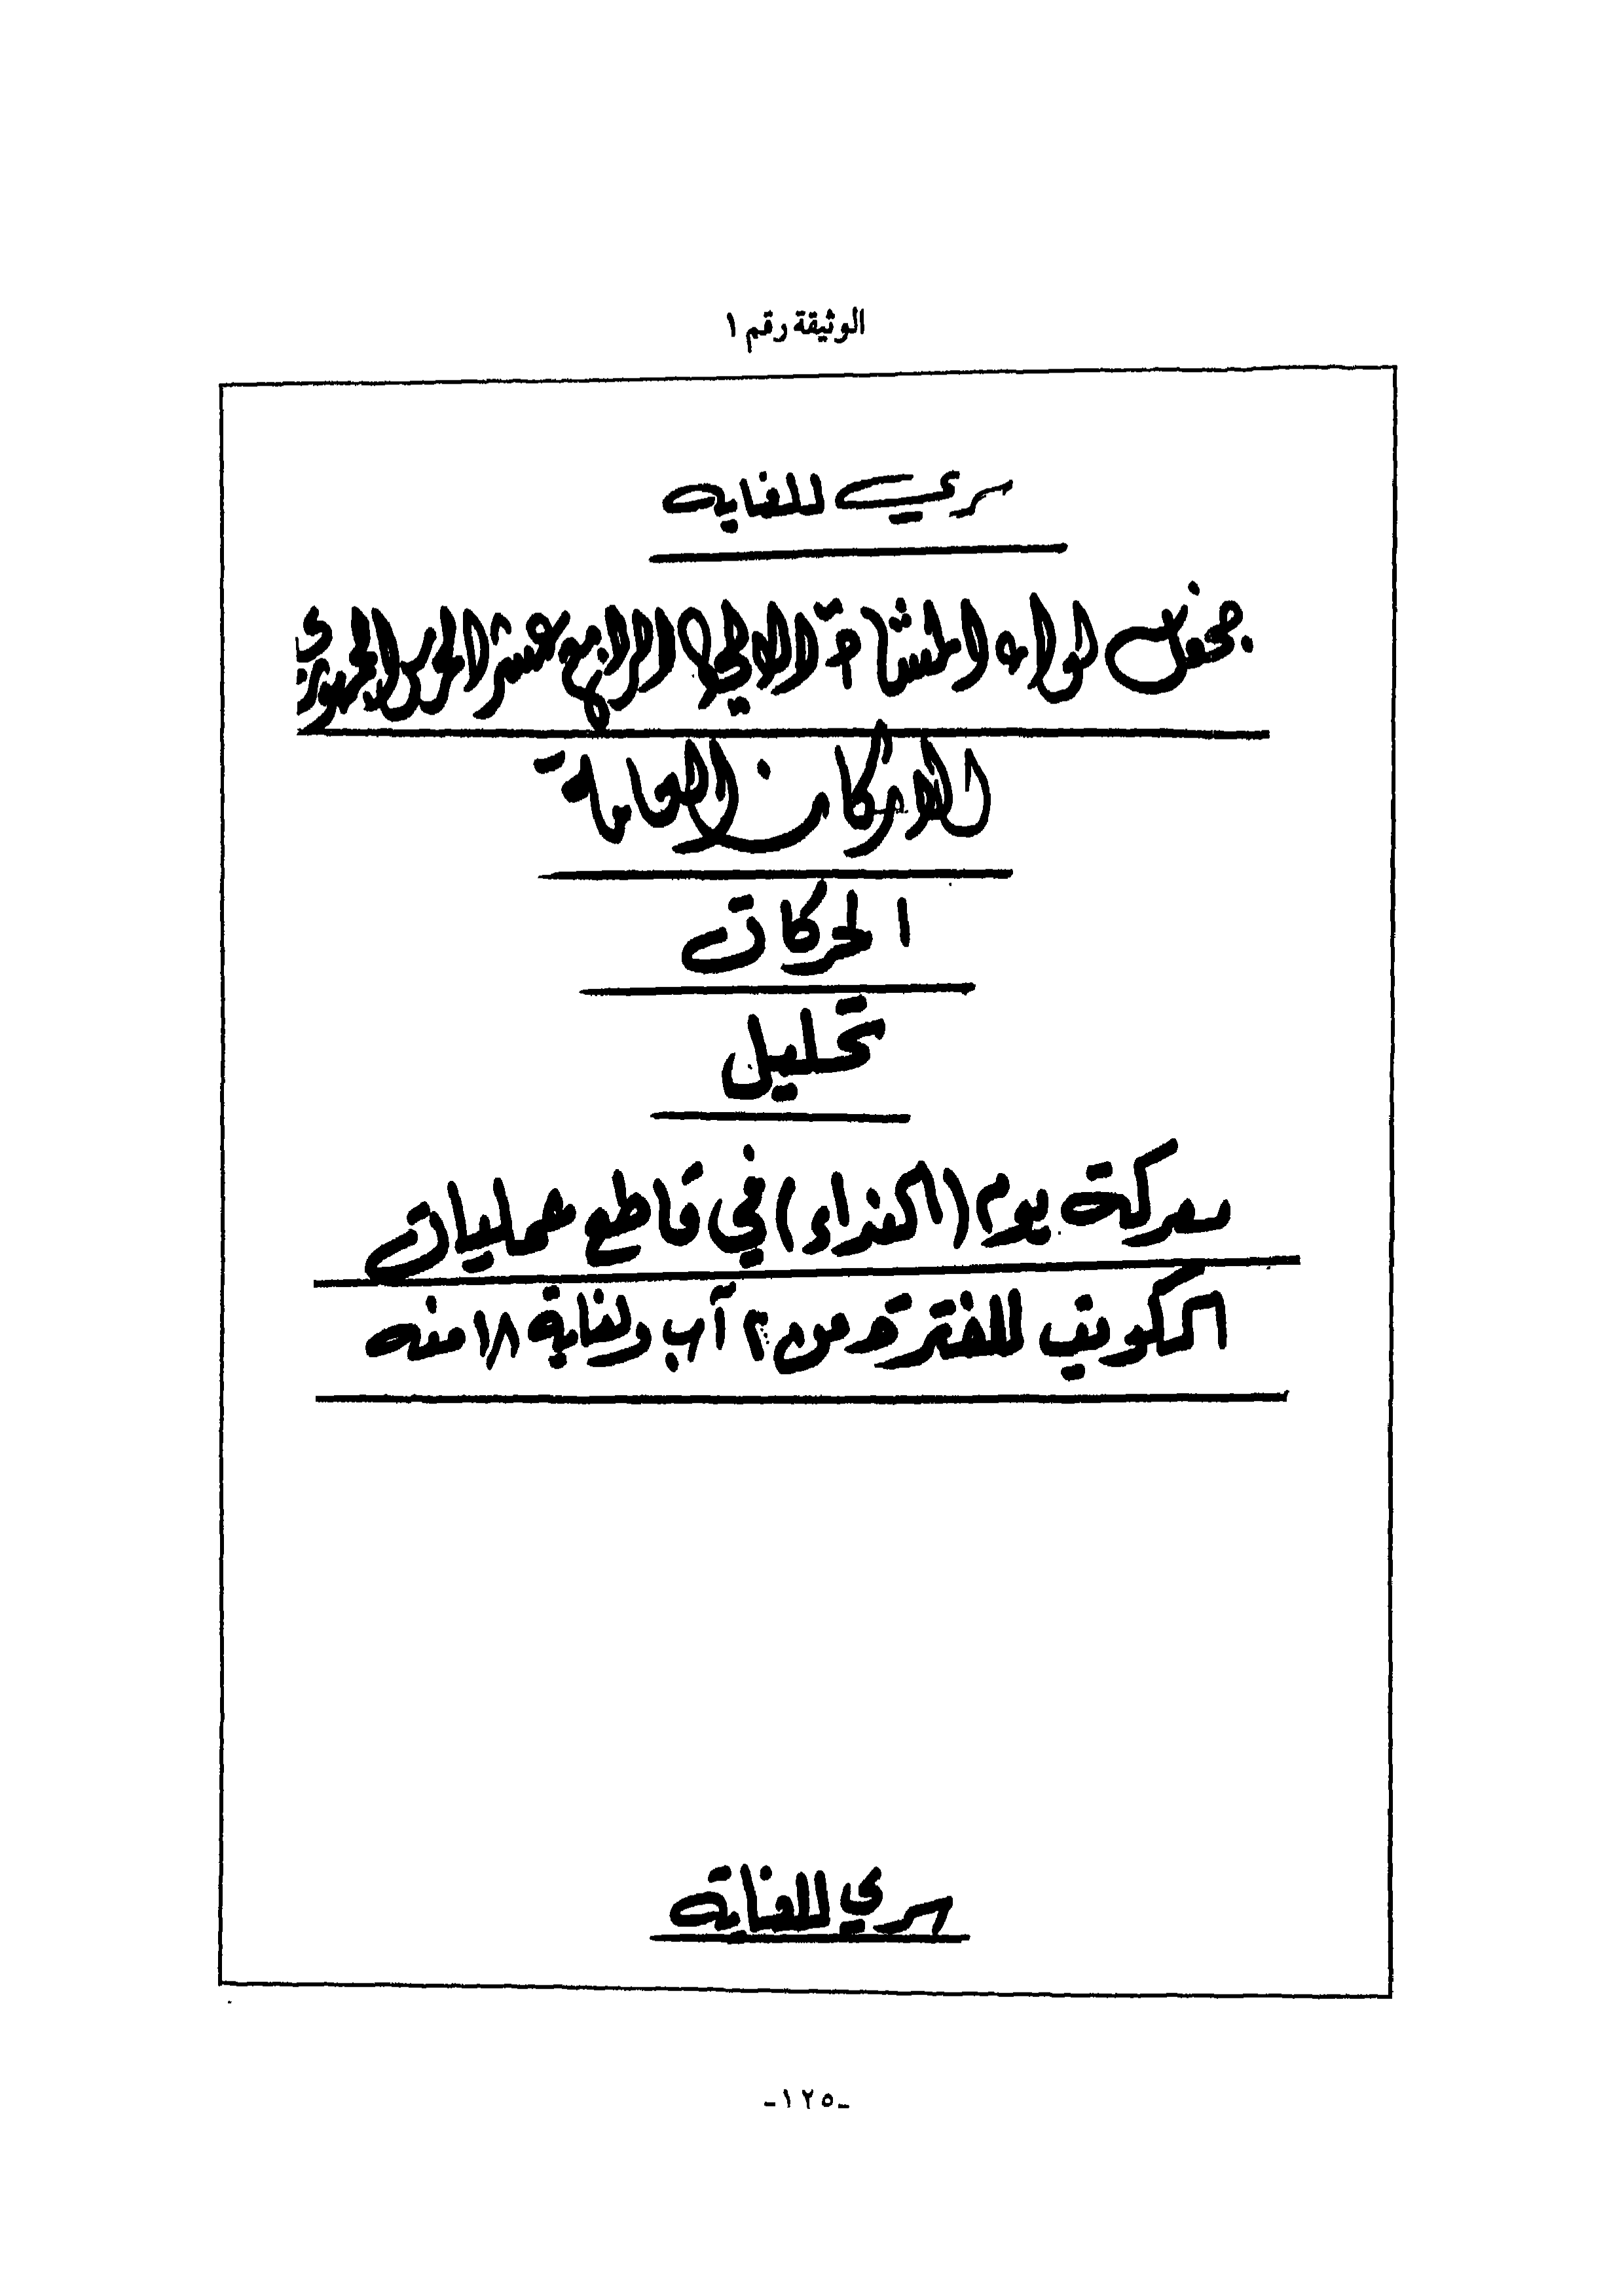 الوثيقة رقم ١
سري للغايه
جحفل لواء المشاة الالي الرابع عشر الحرس الجمهوري
الاركان العامة
الحركات
تحليل
معركة يوم (النداء) في قاطع عمليات
الكويت للفترة من ٢ آب ولغاية ١٨ منه
سري للغاية
-١٢٥-